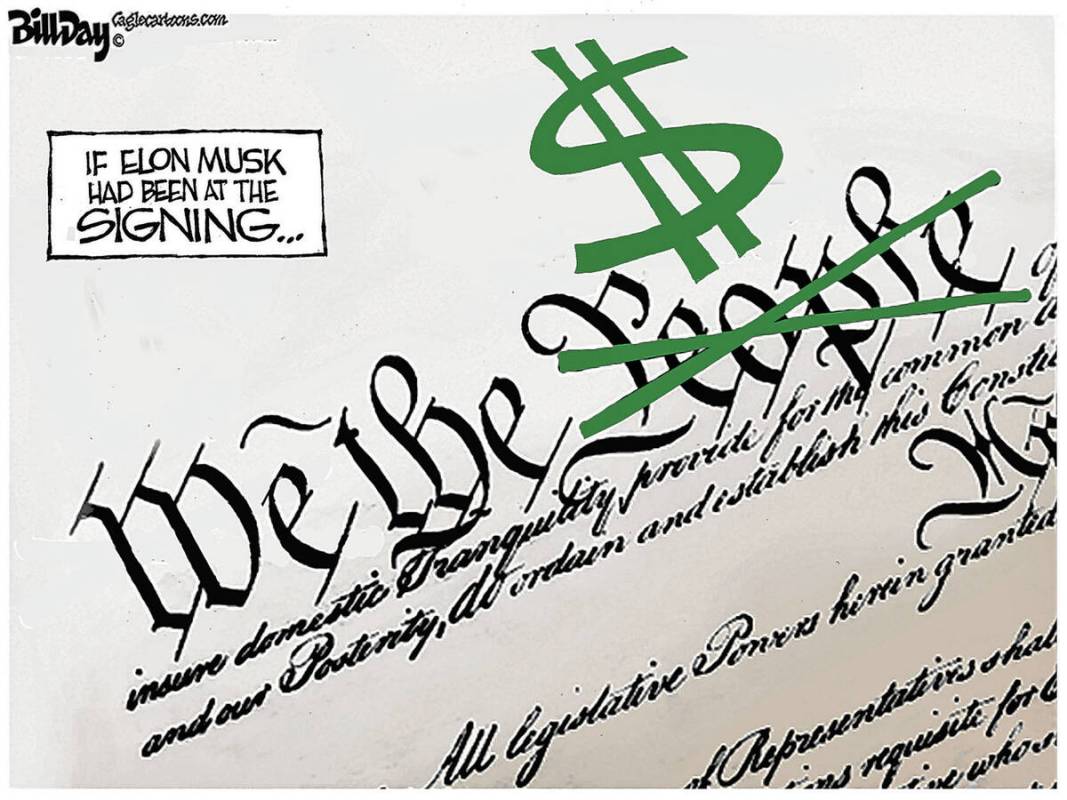 Bill Day
caglecartoons.com
©
IF ELON MUSK
HAD BEEN AT THE
SIGNING...
$
We the People
insure domestic Tranquility, provide for the common
and our Posterity, do ordain and establish this
All legislative Powers herein granted
of Representatives
requisite for